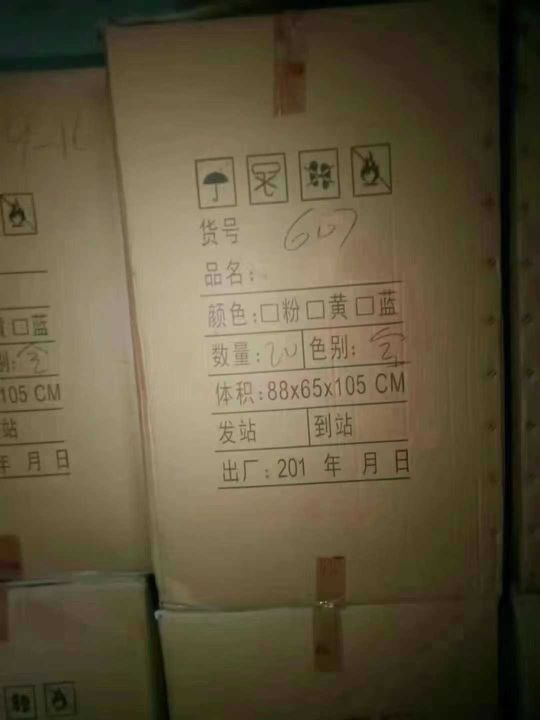 货号 607
品名:
颜色:□粉□黄□蓝
数量:20 色别:全
体积:88x65x105 CM
发站 到站
出厂:201 年 月 日
□蓝
别:全
105 CM
站
年 月 日